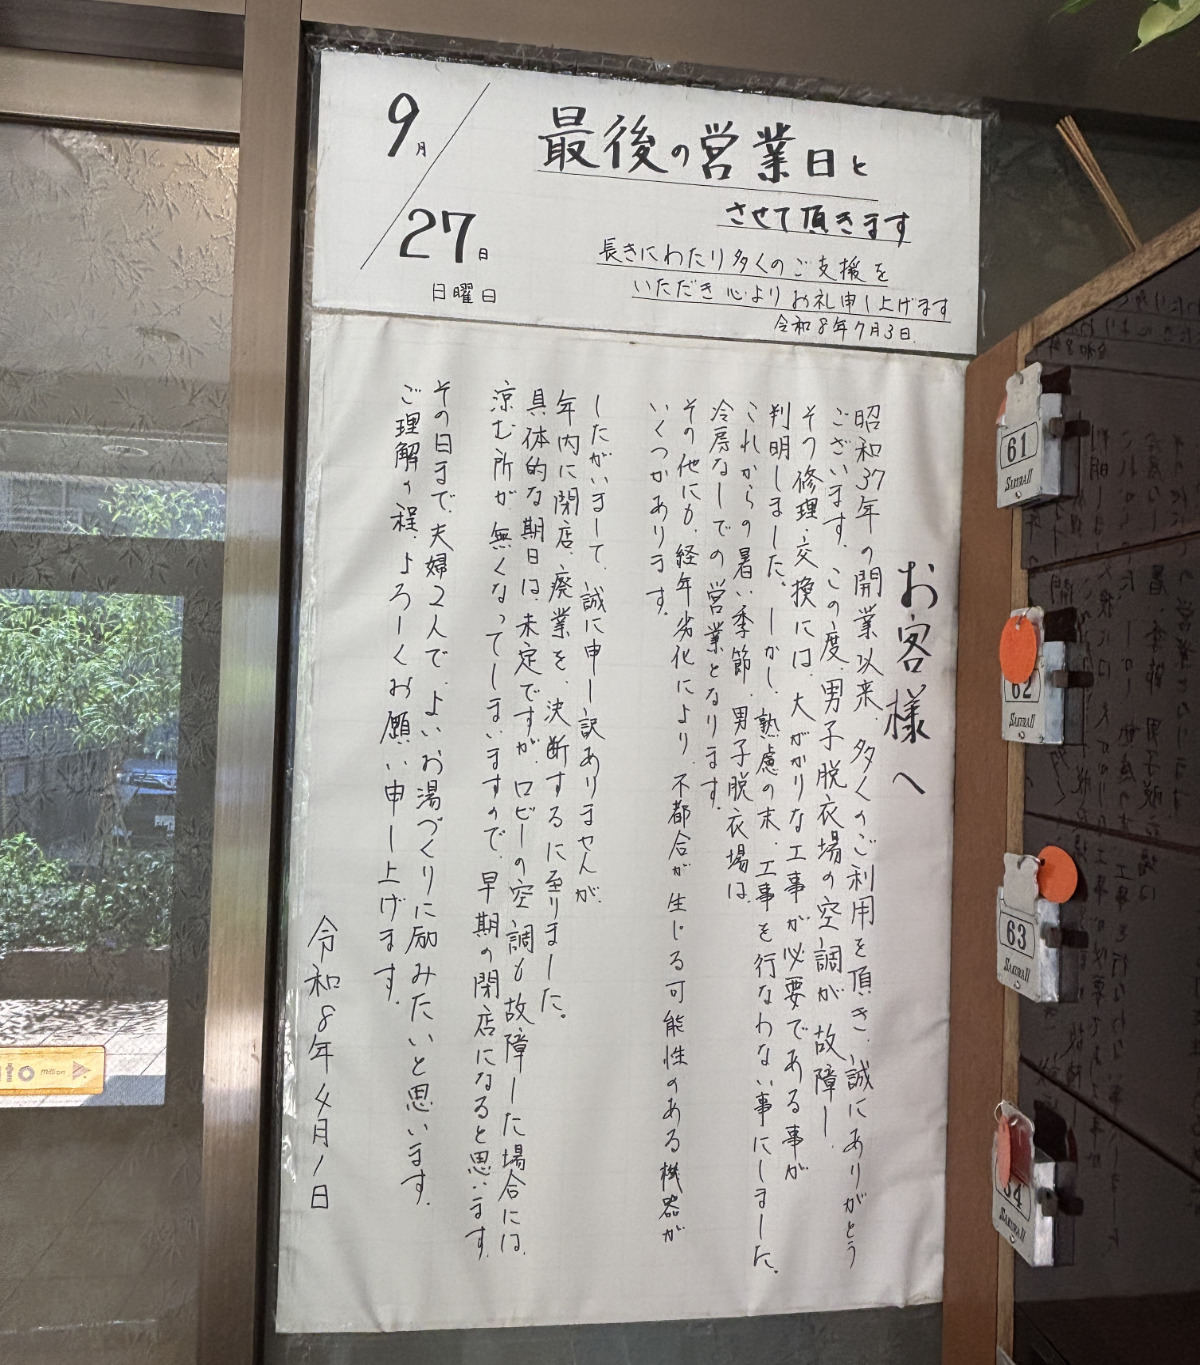 9月
27日
日曜日
最後の営業日と
させて頂きます
長きにわたり多くのご支援を
いただき心よりお礼申し上げます
令和8年7月3日
お客様へ
昭和37年の開業以来、多くのご利用を頂き、誠にありがとう
ございます。この度、男子脱衣場の空調が故障し、
その修理・交換には、大がかりな工事が必要である事が
判明しました。しかし、熟慮の末、工事を行なわない事にしました。
これからの暑い季節、男子脱衣場は、
冷房なしでの営業となります。
その他にも、経年劣化により、不都合が生じる可能性のある機器が
いくつかあります。
したがいまして、誠に申し訳ありませんが、
年内に閉店、廃業を、決断するに至りました。
具体的な期日は、未定ですが、ロビーの空調も故障した場合には、
涼む所が無くなってしまいますので、早期の閉店になると思います。
その日まで、夫婦2人で、よいお湯づくりに励みたいと思います。
ご理解の程、よろしくお願い申し上げます。
令和8年4月1日
61
SAKURA II
62
SAKURA II
63
SAKURA II
34
SAKURA II
to
million